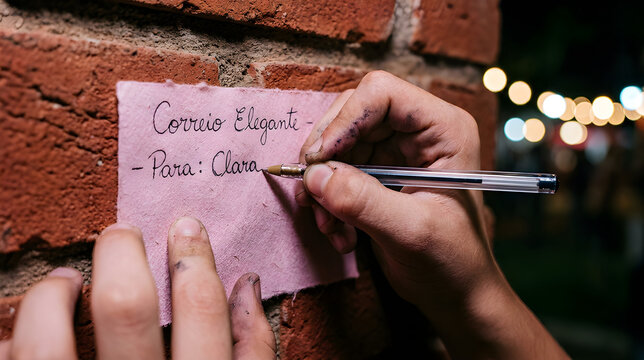 Correio Elegante -
- Para: Clara